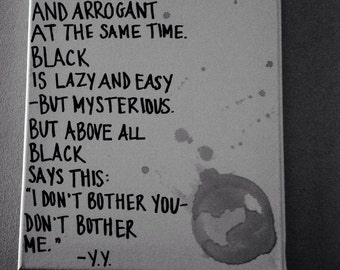 AND ARROGANT
AT THE SAME TIME.
BLACK
IS LAZY AND EASY
-BUT MYSTERIOUS.
BUT ABOVE ALL
BLACK
SAYS THIS:
"I DON'T BOTHER YOU-
DON'T BOTHER
ME."
-Y.Y.